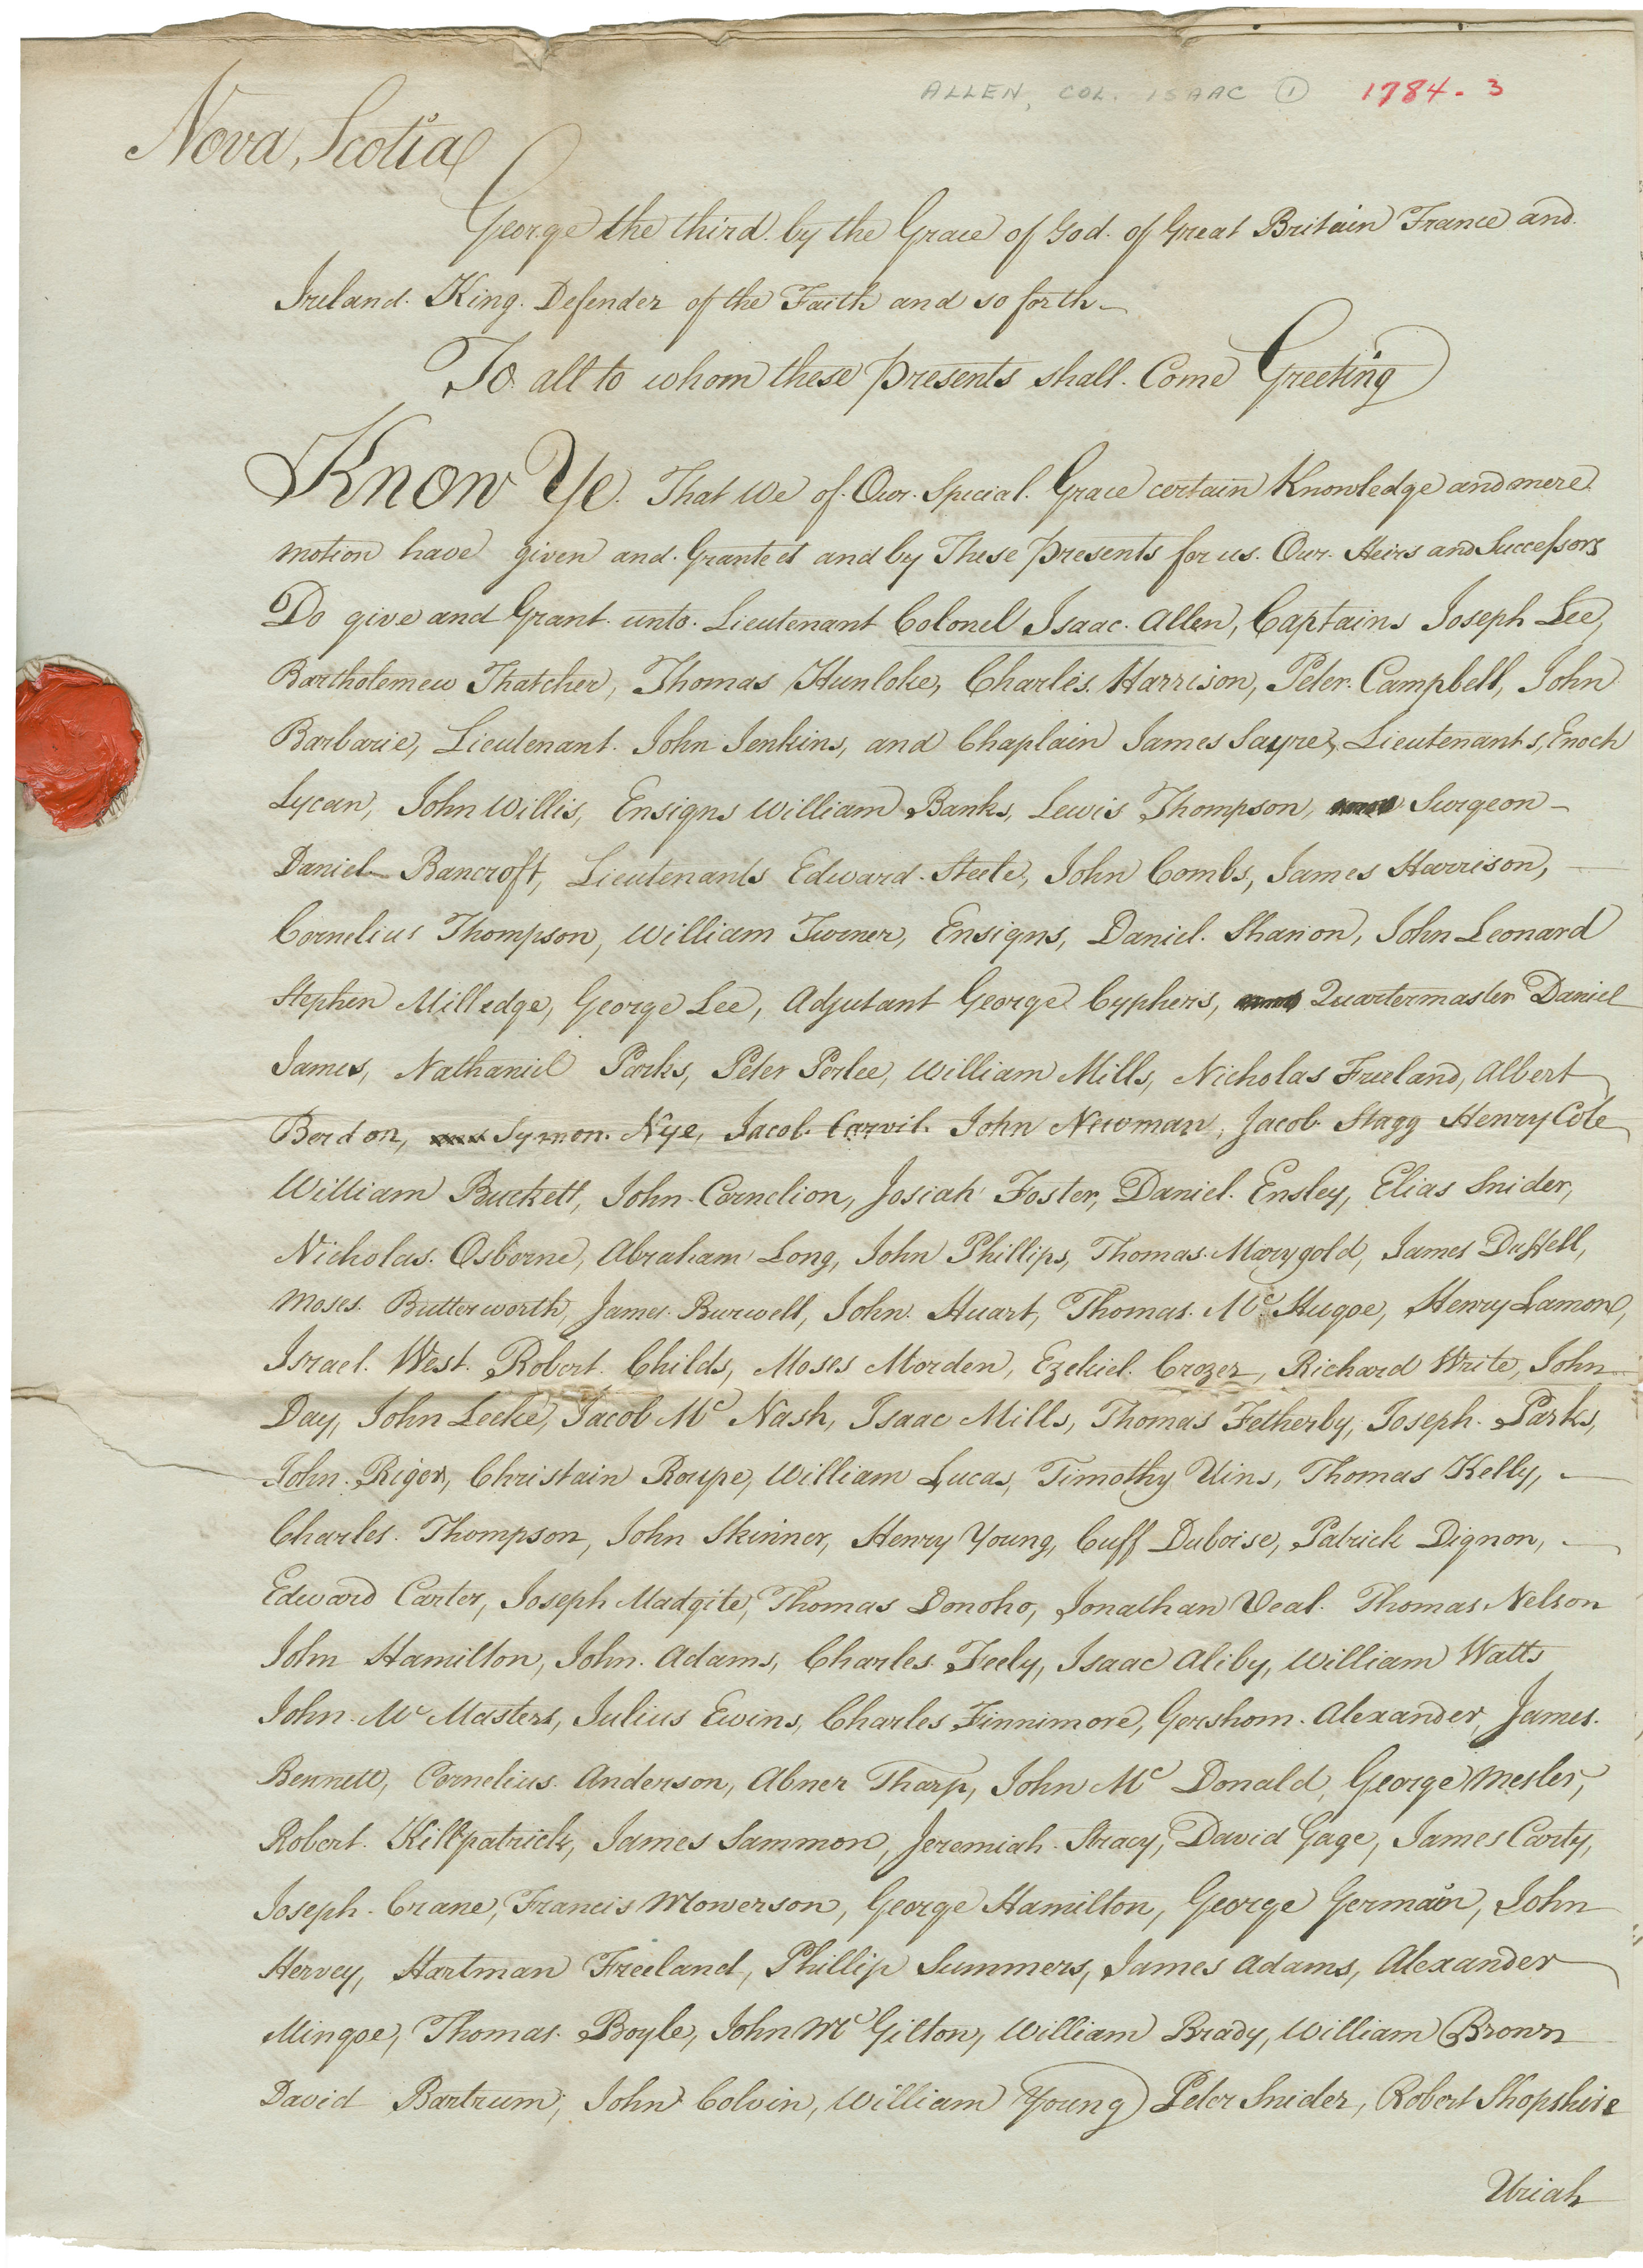 ALLEN, COL. ISAAC 1 1784-3
Nova Scotia
George the third by the Grace of God of Great Britain France and
Ireland King Defender of the Faith and so forth
To all to whom these presents shall Come Greeting
Know Ye. That We of Our Special Grace certain Knowledge and mere
motion have given and Granted and by These presents for us Our Heirs and Successors
Do give and Grant unto Lieutenant Colonel Isaac Allen, Captains Joseph Lee,
Bartholemew Thatcher, Thomas Hunloke, Charles Harrison, Peter Campbell, John
Barbarie, Lieutenant John Jenkins, and Chaplain James Sayre, Lieutenants, Enoch
Lycan, John Willis, Ensigns William Banks, Lewis Thompson, Surgeon
Daniel Bancroft, Lieutenants Edward Steele, John Combs, James Harrison,
Cornelius Thompson, William Turner, Ensigns, Daniel Shanon, John Leonard
Stephen Milledge, George Lee, Adjutant George Cyphers, Quartermaster Daniel
James, Nathaniel Parks, Peter Perlee, William Mills, Nicholas Freeland, Albert
Berdon, Symon Nye, Jacob Carvil John Newman, Jacob Stagg Henry Cole
William Buckett, John Cornelion, Josiah Foster, Daniel Ensley, Elias Snider,
Nicholas Osborne, Abraham Long, John Phillips, Thomas Marygold, James Duffell,
Moses Butterworth, James Burwell, John Stuart, Thomas Mc Hugoe, Henry Lamon,
Israel West Robert Childs, Moses Morden, Ezekiel Crozer, Richard Write, John
Day, John Lecke, Jacob Mc Nash, Isaac Mills, Thomas Fetherby, Joseph Parks,
John Riger, Christain Roupe, William Lucas, Timothy Uins, Thomas Kelly,
Charles Thompson, John Skinner, Henry Young, Cuff Duboise, Patrick Dignon,
Edward Carter, Joseph Madgite, Thomas Donoho, Jonathan Veal Thomas Nelson
John Hamilton, John Adams, Charles Feely, Isaac Aliby, William Watts
John Mc Masters, Julius Ewins, Charles Finnimore, Gershom Alexander, James
Bennett, Cornelius Anderson, Abner Tharp, John Mc Donald, George Mesler,
Robert Killpatrick, James Sammon, Jeremiah Stracy, David Gage, James Carty,
Joseph Crane, Francis Mowerson, George Hamilton, George Germain, John
Hervey, Hartman Freeland, Phillip Summers, James Adams, Alexander
Mingoe, Thomas Boyle, John Mc Gilton, William Brady, William Brown
David Bartrum, John Colvin, William Young Peter Snider, Robert Shopshire
Uriah